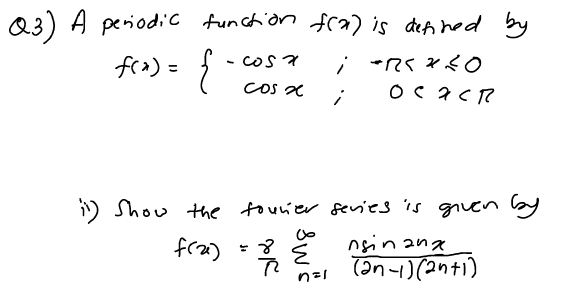 Q3) A periodic function f(x) is defined by
f(x) = { - cos x ; -π < x ≤ 0
cos x ; 0 < x < π
ii) Show the fourier series is given by
f(x) = 8/π ∑ n=1 ∞ n sin 2nx / (2n-1)(2n+1)